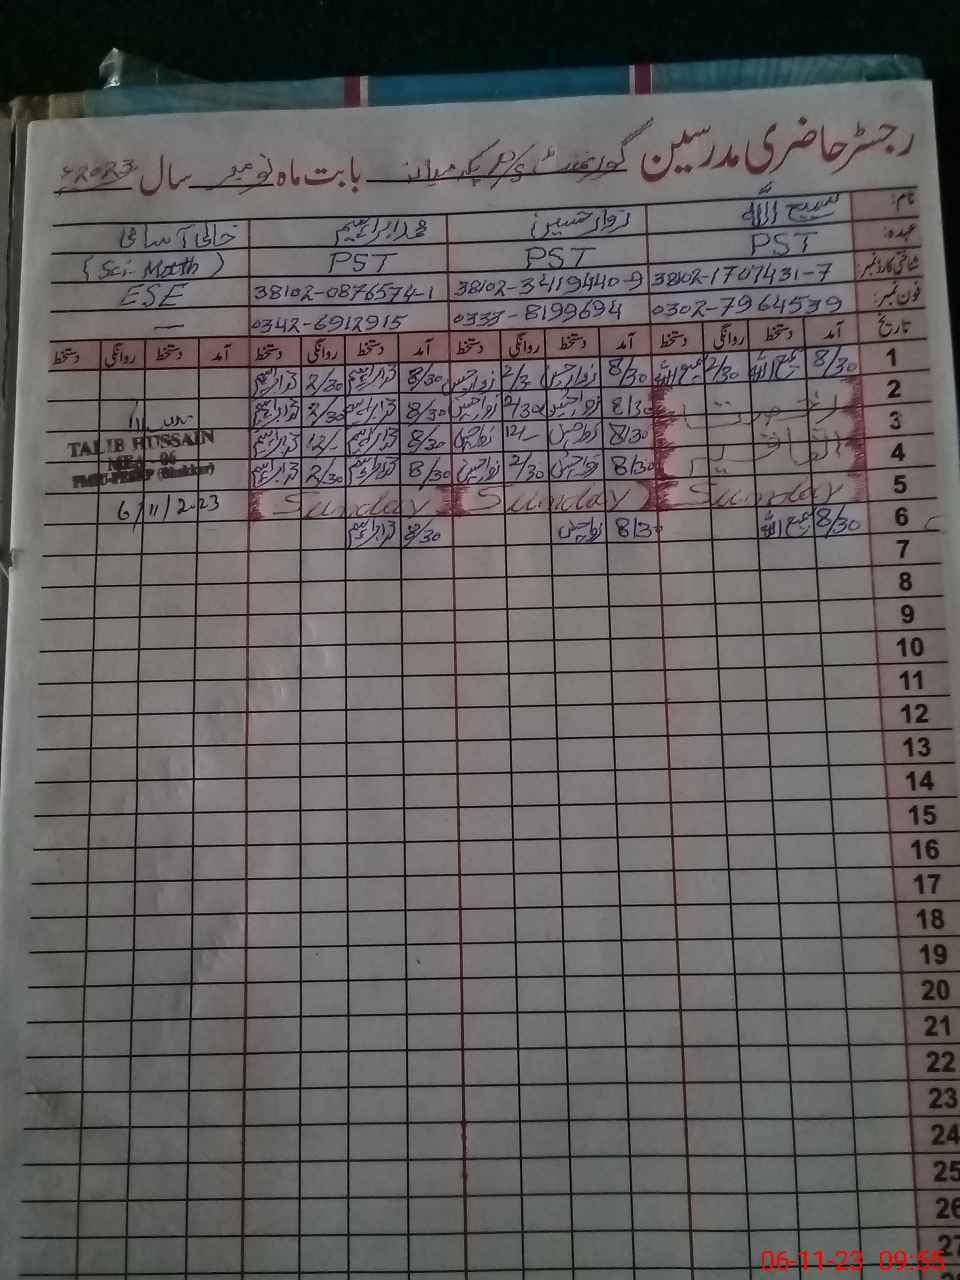 رجسٹر حاضری مدرسین گورنمنٹ P/S پکہ میانہ بابت ماہ نومبر سال 2023ء
نام: سمیع اللہ زوار حسین محمد ابراہیم خالی آسامی
عہدہ: PST PST PST (Sci-Math)
شناختی کارڈ نمبر: 38102-1707431-7 38102-3419440-9 38102-0876574-1 ESE
فون نمبر: 0302-7964539 0333-8199694 0342-6912915 —
تاریخ آمد دستخط روانگی دستخط آمد دستخط روانگی دستخط آمد دستخط روانگی دستخط آمد دستخط روانگی دستخط
1 8/30 سمیع اللہ 2/30 سمیع اللہ 8/30 زوار حسین 2/30 زوار حسین 8/30 محمد ابراہیم 2/30 محمد ابراہیم
2 8/30 زوار حسین 2/30 زوار حسین 8/30 محمد ابراہیم 2/30 محمد ابراہیم
3 رخصت 8/30 زوار حسین 12/- زوار حسین 8/30 محمد ابراہیم 12/- محمد ابراہیم
4 8/30 زوار حسین 2/30 زوار حسین 8/30 محمد ابراہیم 2/30 محمد ابراہیم
TALIB HUSSAIN
MEA-06
(Bhakkar)
5 Sunday Sunday Sunday
6/11/2023
6 8/30 سمیع اللہ 8/30 زوار حسین 8/30 محمد ابراہیم
7
8
9
10
11
12
13
14
15
16
17
18
19
20
21
22
23
24
25
26
27
06-11-23 09:55